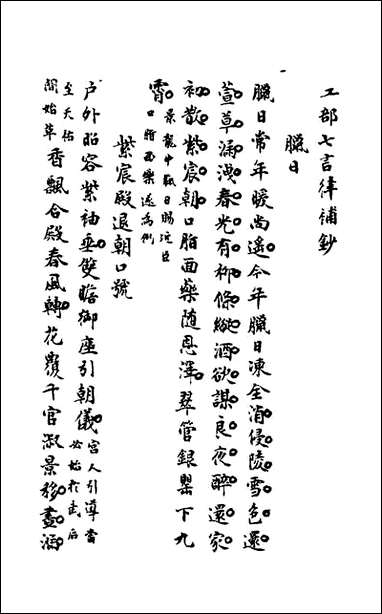 工部七言律補鈔
臘日
臘日常年暖尚遙今年臘日凍全消侵陵雪色還
萱草漏洩春光有柳條縱酒欲謀良夜醉還家
初散紫宸朝口脂面藥隨恩澤翠管銀罌下九
霄景龍中臘日賜近臣
口脂面藥遂為例
紫宸殿退朝口號
戶外昭容紫袖垂雙瞻御座引朝儀宮人引導當
必始於武后
至天佑
間始革香飄合殿春風轉花覆千官淑景移晝漏